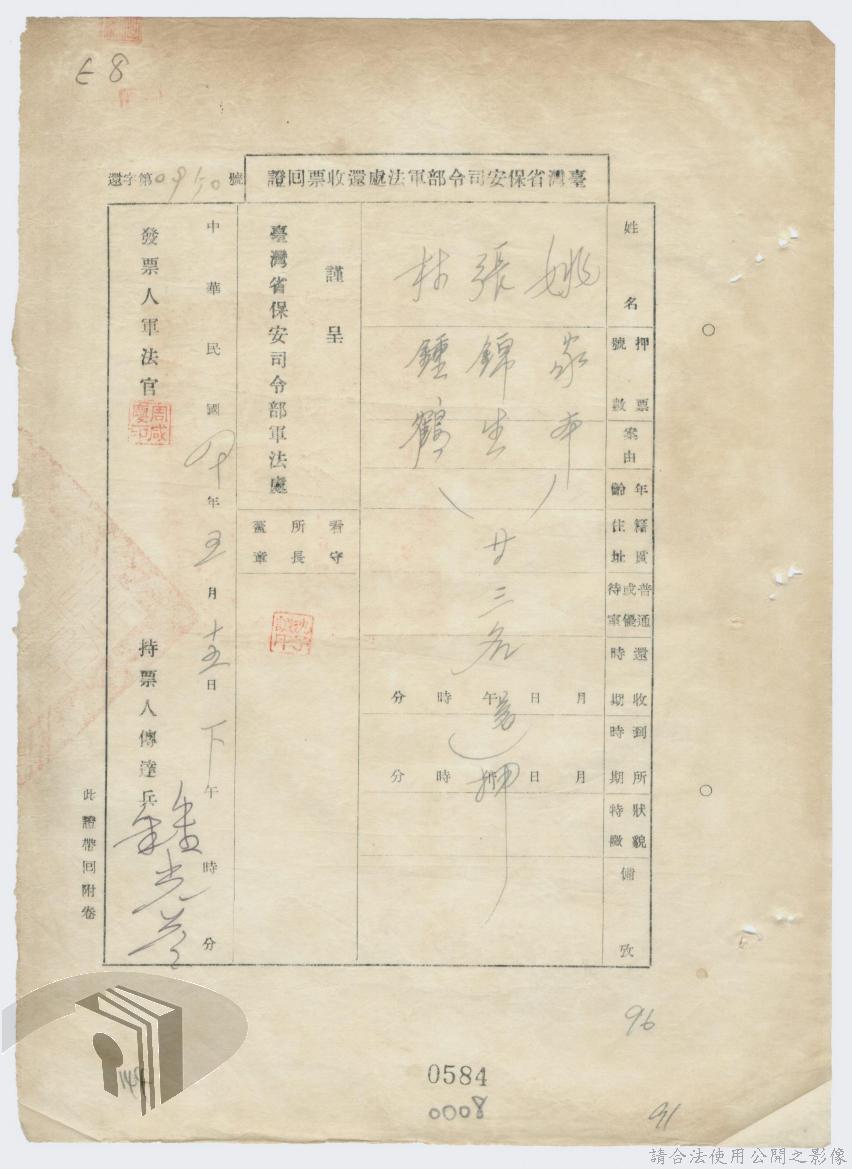 E 8
臺灣省保安司令部軍法處還收票回證
還字第0950號
姓名
押票號數
案由
年齡
籍貫住址
普通或優待室
還收時期
到所時期
狀貌特徵
備攷
姚家本
張錦生
林鍾鶴
(廿三名
)還押
月 日 午 時 分
月 日 所 時 分
謹呈
臺灣省保安司令部軍法處
看守所長蓋章
中華民國四十年五月十五日下午 時 分
發票人軍法官
周咸慶印
持票人傳達兵
此證帶回附卷
96
0584
0008
91
請合法使用公開之影像